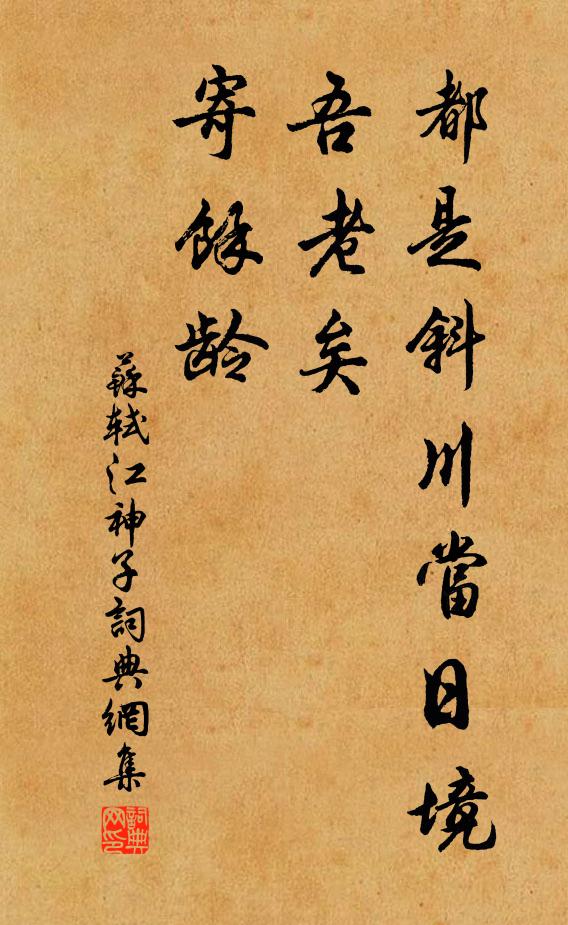 都是斜川當日境
吾老矣
寄餘齡
蘇軾江神子詞典網集
詞典
网印